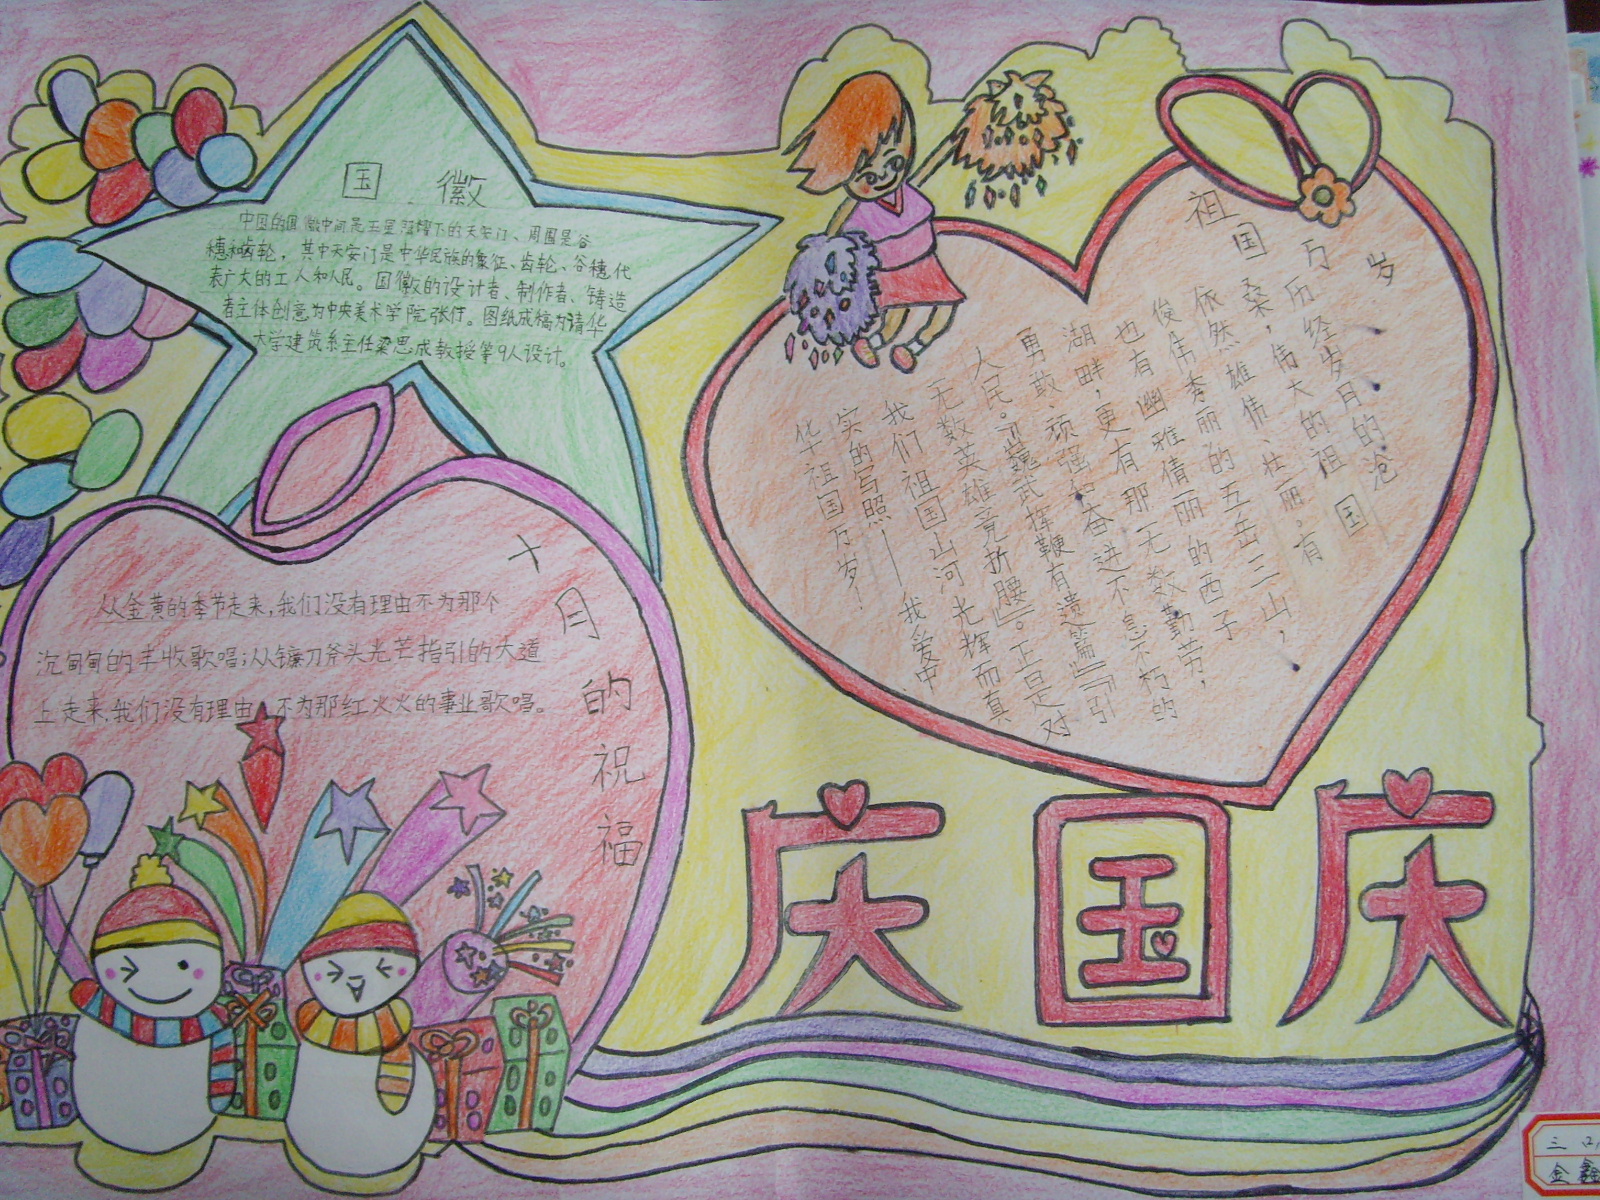 国徽
中国的国徽中间是五星照耀下的天安门、周围是谷
穗和齿轮，其中天安门是中华民族的象征、齿轮、谷穗代
表广大的工人和人民。国徽的设计者、制作者、铸造
者主体创意为中央美术学院张仃。图纸成稿为请华
大学建筑系主任梁思成教授等9人设计。
十月的祝福
从金黄的季节走来,我们没有理由不为那个
沉甸甸的丰收歌唱;从镰刀斧头光芒指引的大道
上走来,我们没有理由不为那红火火的事业歌唱。
祖国万岁
历经岁月的沧
桑，伟大的祖国
依然雄伟、壮丽。有
俊伟秀丽的五岳三山，
也有幽雅倩丽的西子
湖畔，更有那无数勤劳，
勇敢、顽强和奋进不息不朽的
人民。巍武挥鞭有遗篇』『引
无数英雄竞折腰』。正是对
我们祖国山河光辉而真
实的写照——我爱中
华祖国万岁！
庆国庆
三
金鑫